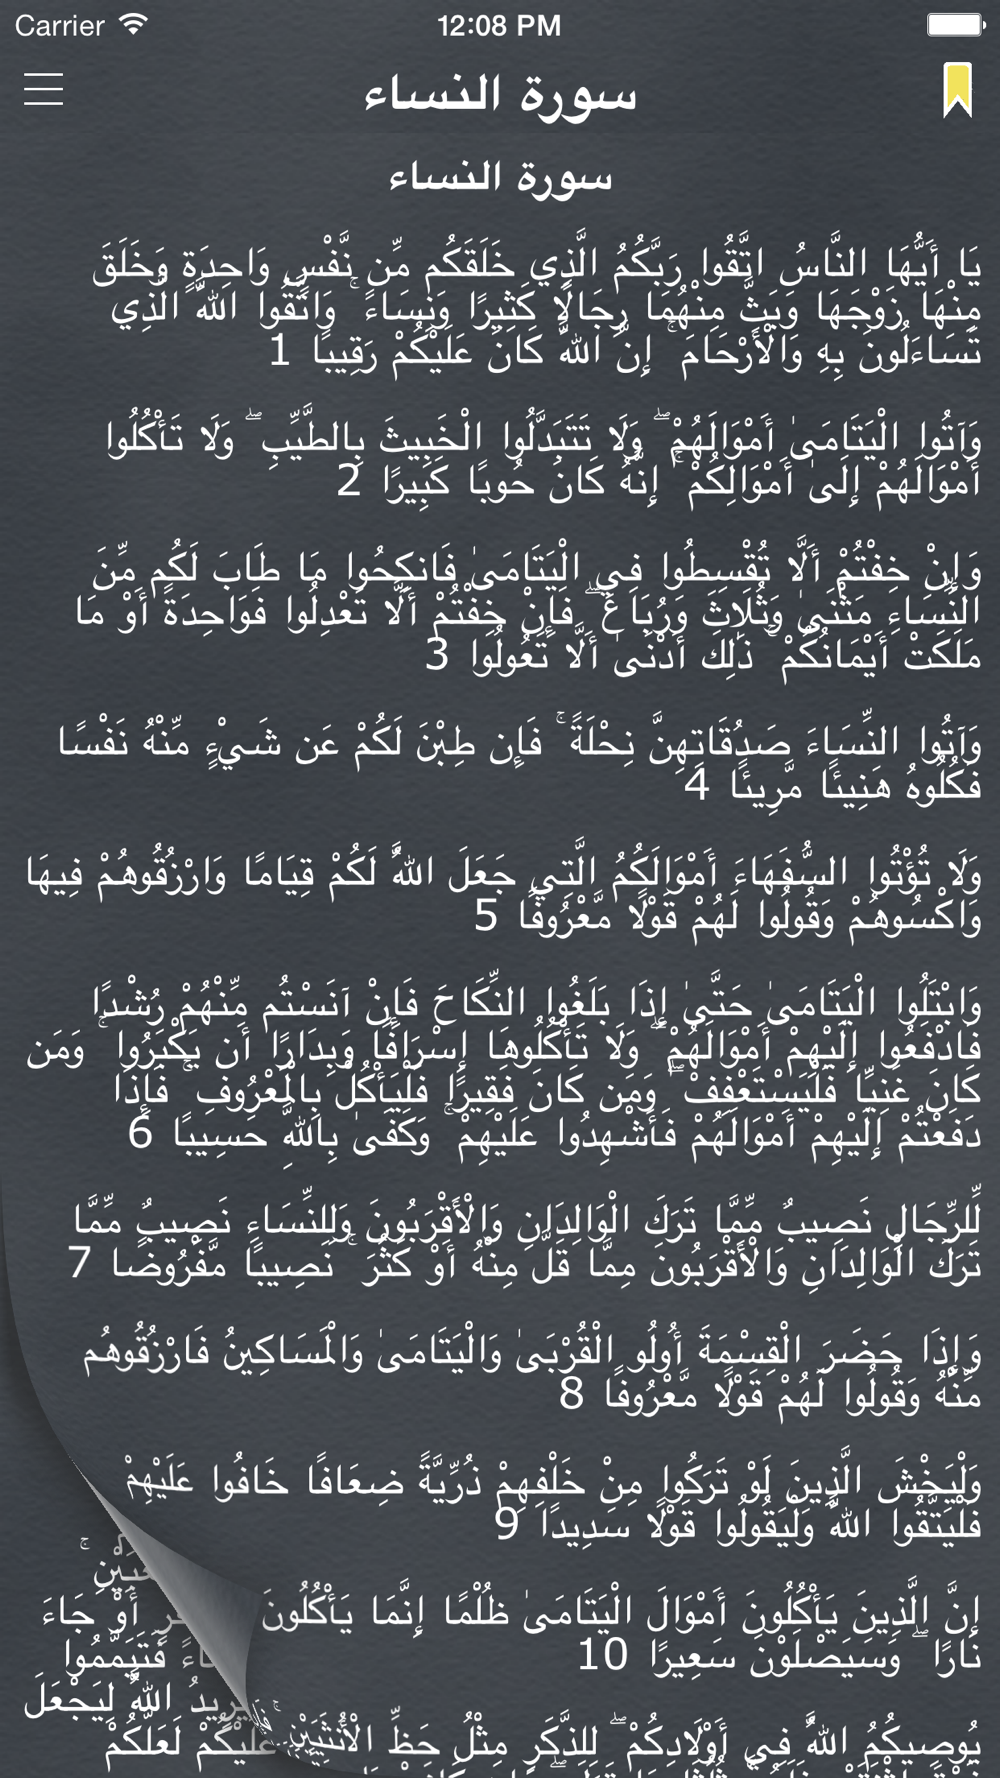 Carrier 12:08 PM
سورة النساء
سورة النساء
يَا أَيُّهَا النَّاسُ اتَّقُوا رَبَّكُمُ الَّذِي خَلَقَكُم مِّن نَّفْسٍ وَاحِدَةٍ وَخَلَقَ
مِنْهَا زَوْجَهَا وَبَثَّ مِنْهُمَا رِجَالًا كَثِيرًا وَنِسَاءً ۚ وَاتَّقُوا اللَّهَ الَّذِي
تَسَاءَلُونَ بِهِ وَالْأَرْحَامَ ۚ إِنَّ اللَّهَ كَانَ عَلَيْكُمْ رَقِيبًا 1
وَآتُوا الْيَتَامَىٰ أَمْوَالَهُمْ ۖ وَلَا تَتَبَدَّلُوا الْخَبِيثَ بِالطَّيِّبِ ۖ وَلَا تَأْكُلُوا
أَمْوَالَهُمْ إِلَىٰ أَمْوَالِكُمْ ۚ إِنَّهُ كَانَ حُوبًا كَبِيرًا 2
وَإِنْ خِفْتُمْ أَلَّا تُقْسِطُوا فِي الْيَتَامَىٰ فَانكِحُوا مَا طَابَ لَكُم مِّنَ
النِّسَاءِ مَثْنَىٰ وَثُلَاثَ وَرُبَاعَ ۖ فَإِنْ خِفْتُمْ أَلَّا تَعْدِلُوا فَوَاحِدَةً أَوْ مَا
مَلَكَتْ أَيْمَانُكُمْ ۚ ذَٰلِكَ أَدْنَىٰ أَلَّا تَعُولُوا 3
وَآتُوا النِّسَاءَ صَدُقَاتِهِنَّ نِحْلَةً ۚ فَإِن طِبْنَ لَكُمْ عَن شَيْءٍ مِّنْهُ نَفْسًا
فَكُلُوهُ هَنِيئًا مَّرِيئًا 4
وَلَا تُؤْتُوا السُّفَهَاءَ أَمْوَالَكُمُ الَّتِي جَعَلَ اللَّهُ لَكُمْ قِيَامًا وَارْزُقُوهُمْ فِيهَا
وَاكْسُوهُمْ وَقُولُوا لَهُمْ قَوْلًا مَّعْرُوفًا 5
وَابْتَلُوا الْيَتَامَىٰ حَتَّىٰ إِذَا بَلَغُوا النِّكَاحَ فَإِنْ آنَسْتُم مِّنْهُمْ رُشْدًا
فَادْفَعُوا إِلَيْهِمْ أَمْوَالَهُمْ ۖ وَلَا تَأْكُلُوهَا إِسْرَافًا وَبِدَارًا أَن يَكْبَرُوا ۚ وَمَن
كَانَ غَنِيًّا فَلْيَسْتَعْفِفْ ۖ وَمَن كَانَ فَقِيرًا فَلْيَأْكُلْ بِالْمَعْرُوفِ ۚ فَإِذَا
دَفَعْتُمْ إِلَيْهِمْ أَمْوَالَهُمْ فَأَشْهِدُوا عَلَيْهِمْ ۚ وَكَفَىٰ بِاللَّهِ حَسِيبًا 6
لِّلرِّجَالِ نَصِيبٌ مِّمَّا تَرَكَ الْوَالِدَانِ وَالْأَقْرَبُونَ وَلِلنِّسَاءِ نَصِيبٌ مِّمَّا
تَرَكَ الْوَالِدَانِ وَالْأَقْرَبُونَ مِمَّا قَلَّ مِنْهُ أَوْ كَثُرَ ۚ نَصِيبًا مَّفْرُوضًا 7
وَإِذَا حَضَرَ الْقِسْمَةَ أُولُو الْقُرْبَىٰ وَالْيَتَامَىٰ وَالْمَسَاكِينُ فَارْزُقُوهُم
مِّنْهُ وَقُولُوا لَهُمْ قَوْلًا مَّعْرُوفًا 8
وَلْيَخْشَ الَّذِينَ لَوْ تَرَكُوا مِنْ خَلْفِهِمْ ذُرِّيَّةً ضِعَافًا خَافُوا عَلَيْهِمْ
فَلْيَتَّقُوا اللَّهَ وَلْيَقُولُوا قَوْلًا سَدِيدًا 9
إِنَّ الَّذِينَ يَأْكُلُونَ أَمْوَالَ الْيَتَامَىٰ ظُلْمًا إِنَّمَا يَأْكُلُونَ أَوْ جَاءَ
نَارًا ۖ وَسَيَصْلَوْنَ سَعِيرًا 10 فَتَيَمَّمُوا
يُرِيدُ اللَّهُ لِيَجْعَلَ
يُوصِيكُمُ اللَّهُ فِي أَوْلَادِكُمْ ۖ لِلذَّكَرِ مِثْلُ حَظِّ الْأُنثَيَيْنِ عَلَيْكُمْ لَعَلَّكُمْ